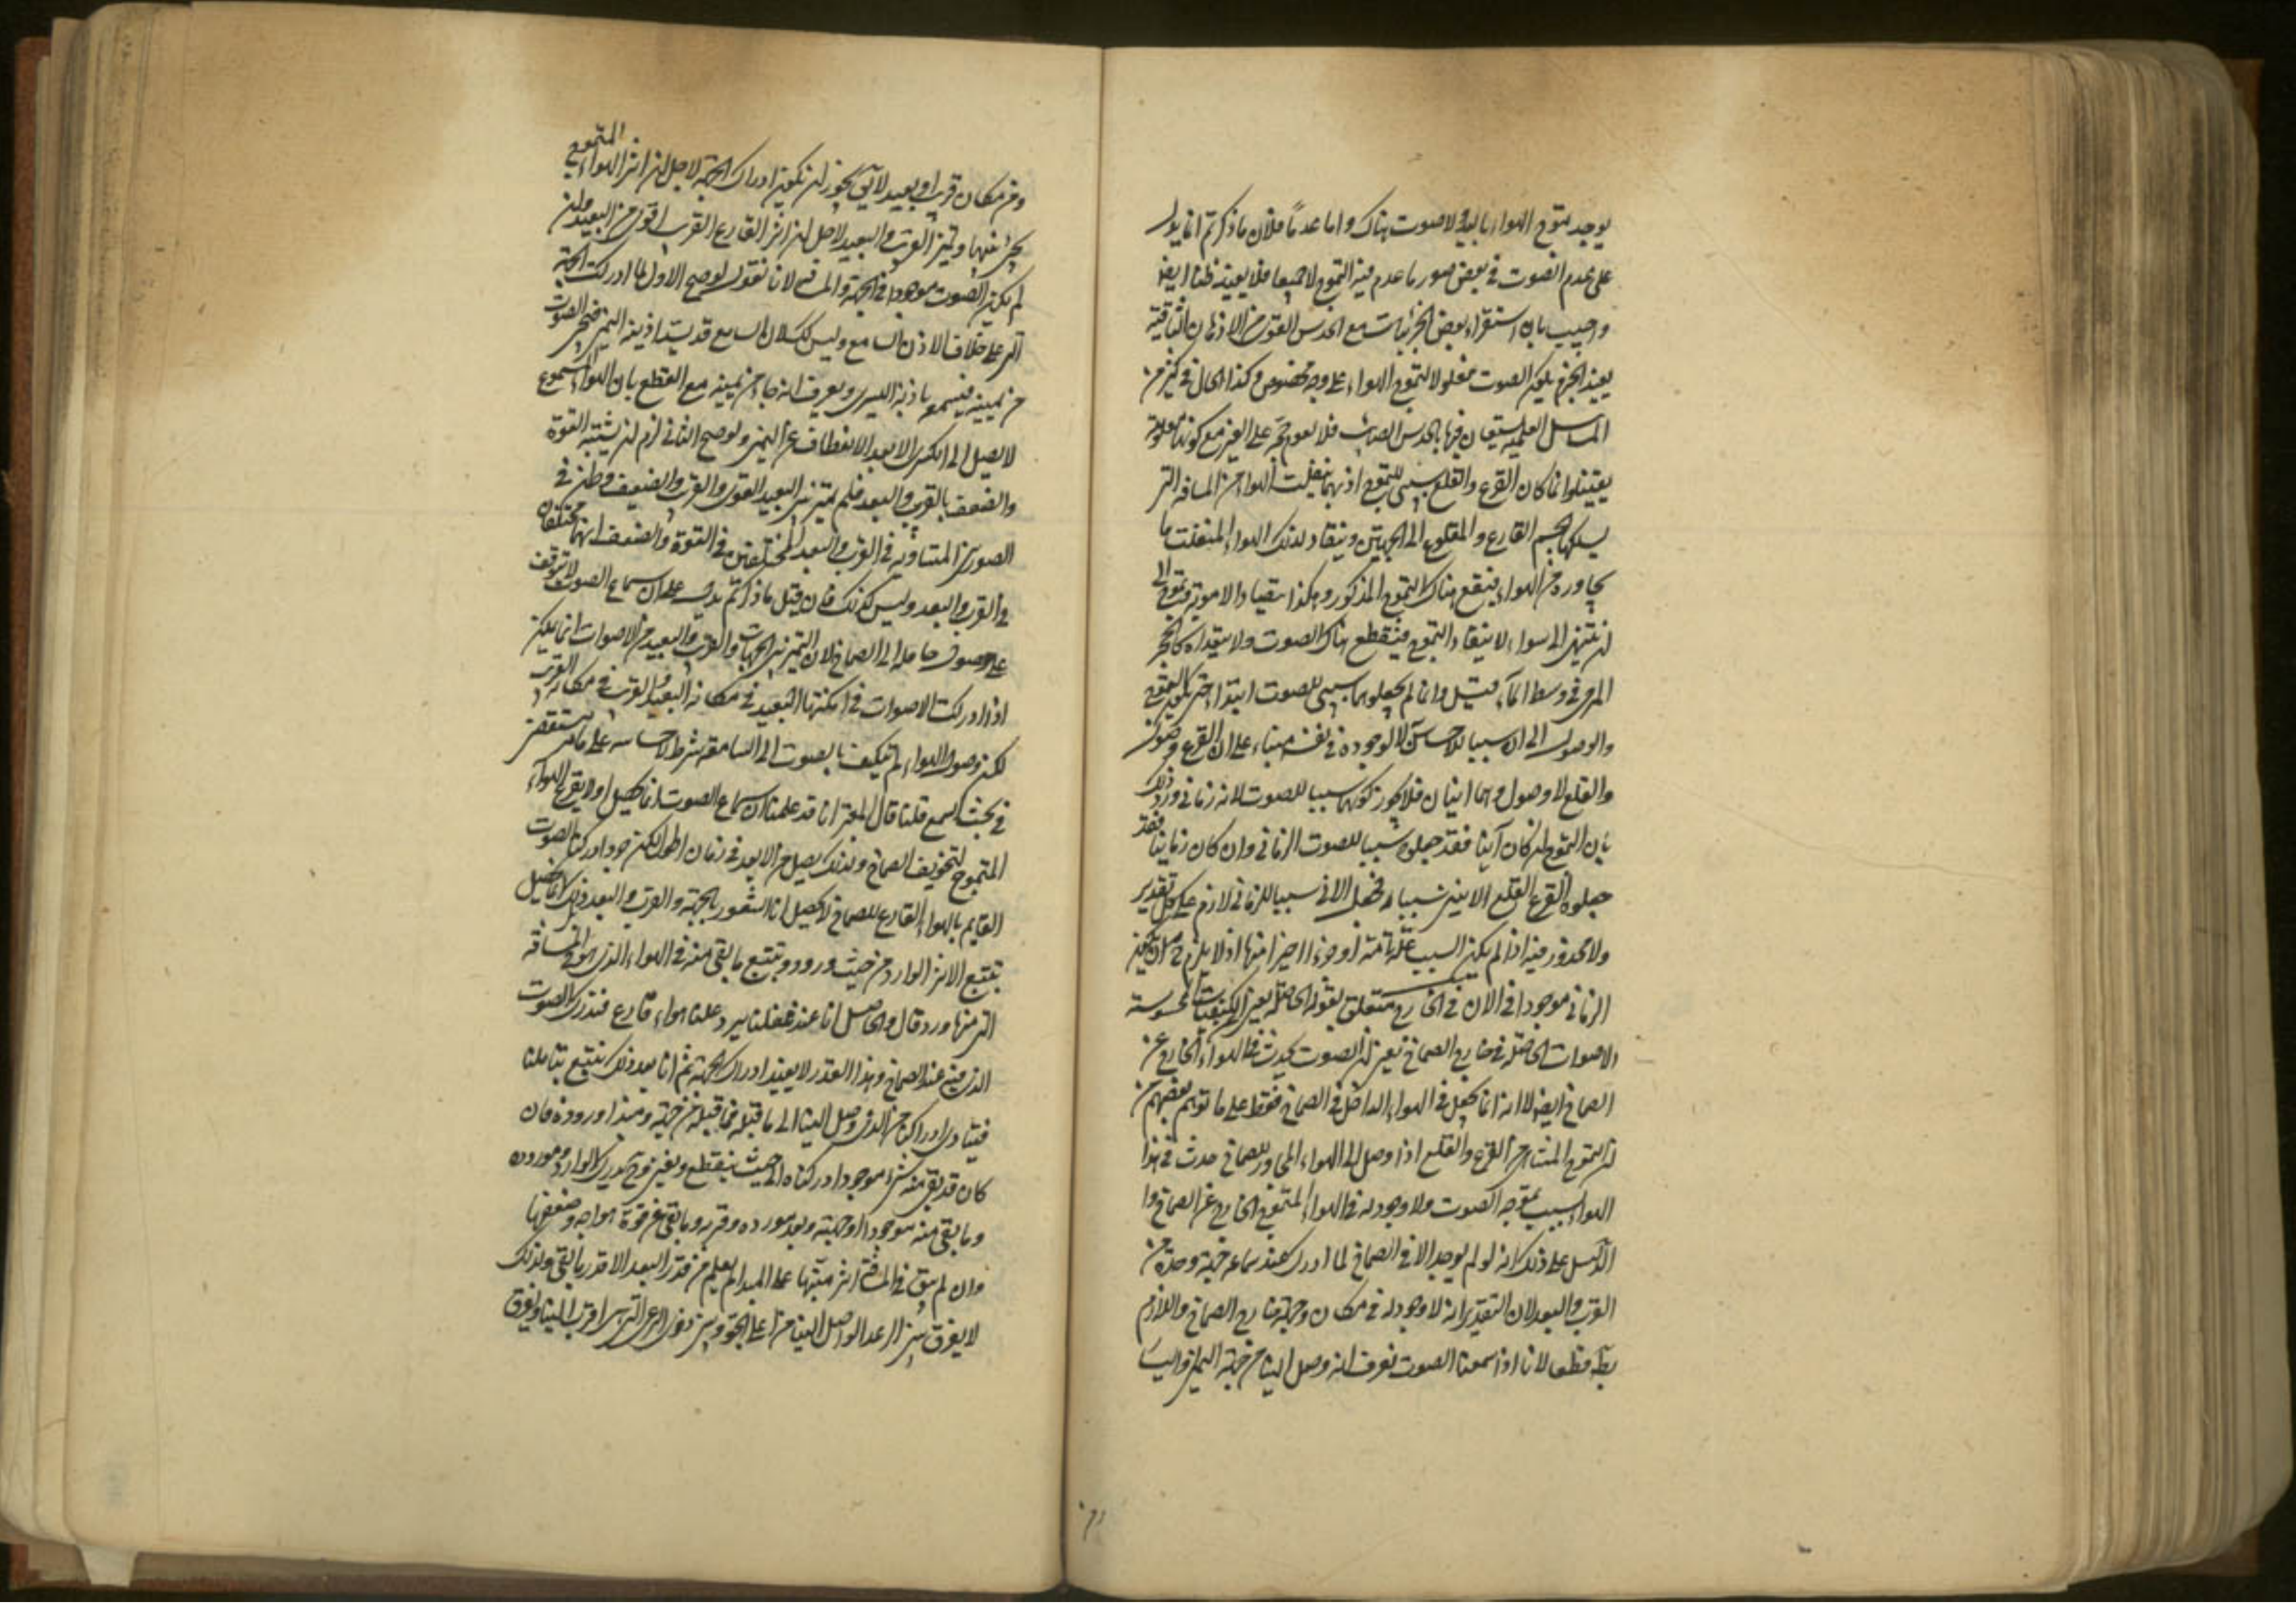 يوجد تموج الهواء باليد ولا صوت هناك واما عدما فلان ما ذكرتم انما يدل
على عدم الصوت في بعض صور ما عدم فيه التموج لا جميعها فلا يفيد ظنا ايضا
واجيب بان استقراء بعض الجزئيات مع الحدس القوى من الاذهان الثاقبة
يفيد الجزم بكون الصوت معلولا لتموج الهواء على وجه مخصوص وكذا الحال في كثير من
المسائل العلمية يستعان فيها بالحدس الصائب فلا تقوم حجة على الغير مع كونها معلومة
يقينا وانما كان القرع والقلع سببي للتموج اذ بهما ينفلت الهواء من المسافة التي
يسلكها الجسم القارع والمقلوع الى الجهتين وينقاد لذلك الهواء المنفلت ما
يجاوره من الهواء فيقع هناك التموج المذكور وهكذا ينقاد الامواج ويتموج الى
ان ينتهى الى هواء لا ينقاد التموج فينقطع هناك الصوت ولا يتعداه كالحجر
المرمى في وسط الماء قيل وانما لم يجعلوهما سببي للصوت ابتداء حتى يكون التموج
والوصول الى السبب للاحساس لا لوجوده في نفسه بناء على ان القرع وصول
والقلع لا وصول وهما انيان فلا يجوز كونهما سببا للصوت لانه زماني ورد ذلك
بان التموج ان كان آنيا فقد جعلوه سببا للصوت الزماني وان كان زمانيا فقد
جعلوا القرع القلع الانيين سببا له فجعل الانى سببا للزماني لازم على كل تقدير
ولا محذور فيه اذا لم يكن السبب علة تامة او جزءا اخيرا منها اذ لا يلزم ح ان يكون
الزماني موجودا في الان في الخارج متعلق بقوله الحاصلة يعنى الكيفيات المحسوسة
الاصوات الحاصلة في خارج الصماخ يعنى ان الصوت يحدث في الهواء الخارج عن
الصماخ ايضا لا انه انما يحصل في الهواء الداخل في الصماخ فقط على ما توهم بعضهم من
ان التموج الناشى من القرع والقلع اذا وصل الى الهواء المجاور للصماخ حدث في هذا
الهواء بسبب تموجه الصوت ولا وجود له في الهواء المتموج الخارج عن الصماخ وا
لدليل على ذلك انه لو لم يوجد الا في الصماخ لما ادرك عند سماعه جهته وحده من
القرب والبعد لان التقدير انه لا وجود له في مكان وجهة خارج الصماخ واللازم
بط قطعا لانا اذا سمعنا الصوت نعرف انه وصل الينا من جهة اليمين او اليسا
ومن مكان قريب او بعيد لا يق يجوز ان يكون ادراك الجهة لاجل ان اثر الهواء المتموج
يجئ منها وتميز القريب والبعيد لاجل ان اثر القارع القريب اقوى من البعيد وان
لم يكن الصوت موجودا في الجهة والمسافة لانا نقول لو صح الاول لما ادركت الجهة
التي على خلاف الاذن السامع وليس كك لان السامع قد يسد اذنه اليمنى فيجئ الصوت
من يمينه فيسمعه باذنه اليسرى ويعرف انه جاء من يمينه مع القطع بان الهواء المتموج
لا يصل الى اليسرى الا بعد الانعطاف عن اليمين ولو صح الثاني لزم ان يشتبه القوة
والضعف بالقرب والبعد فلم يتميز بين البعيد القوى والقريب والضعيف وظن في
الصوتين المتساويين في القرب والبعد المختلفين في القوة والضعف انهما مختلفان
في القرب والبعد وليس كذلك فان قيل ما ذكرتم يدل على ان سماع الصوت لا يتوقف
على وصول حامله الى الصماخ لان التميز بين الجهات والقريب والبعيد من الاصوات انما يكون
اذا ادركت الاصوات في امكنتها البعيد في مكانه البعيد والقريب في مكانه القريب
لكن وصول الهواء المتكيف بالصوت الى السامعة شرط لاحساسه على ما ستقف
في بحث السمع قلنا قال المعتبر انا قد علمنا ان سماع الصوت انما يحصل اولا بقرع الهواء
المتموج لتجويف الصماخ ولذلك يصل من الابعد في زمان اطول لكن بمجرد ادراكنا الصوت
القايم بالهواء القارع للصماخ لا يحصل لنا الشعور بالجهة والقرب والبعد بل ذلك انما يحصل
بتتبع الاثر الوارد من حيث ورد وتتبع ما بقى منه في الهواء الذى هو في المسافة
التي منها ورد قال والحاصل انا عند غفلتنا يرد علينا هواء قارع فندرك الصوت
الذى فيه عند الصماخ وهذا القدر لا يفيد ادراك الجهة ثم انا بعد ذلك نتتبع بتاملنا
فيتادى ادراكنا من الذى وصل الينا الى ما قبله فما قبله من جهته ومبدا وروده فان
كان قد بقى منه شئ موجودا ادركناه الى حيث ينقطع ويفنى وح ندرك الوارد ومورده
وما بقى منه موجودا وجهته وبعد مورده وقربه وما بقى من قوة امواجه وضعفها
وان لم يبق في المسافة اثر ينتهى بنا على المبدا لم يعلم من قدر البعد الا قدر ما بقى ولذلك
لا يفرق بين الرعد الواصل الينا من اعلى الجو وبين دوى الرحى التي هي اقرب الينا ويفرق